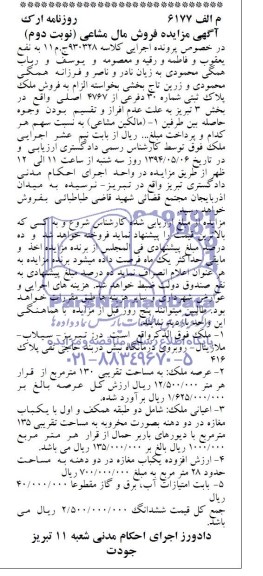 م الف ۶۱۷۷ روزنامه ارک
آگهی مزایده فروش مال مشاعی (نوبت دوم)
در خصوص پرونده اجرایی کلاسه ۹۳۰۳۲۸ج.م۱۱ به نفع
یعقوب و فاطمه و رقیه و معصومه و یوسف و رباب
همگی محمودی به زیان نادر و ناصر و فرزانه همگی
محمودی و زرین تاج بخشی بخواسته الزام به فروش ملک
پلاک ثبتی شماره ۳۰ فرعی از ۴۷۶۷ اصلی واقع در
بخش ۳ تبریز به علت عدم افراز و تقسیم بودن وجوه
حاصله بین طرفین ۱- (مالکین مشاعی) به نسبت سهم هر
کدام و پرداخت مبلغ... ریال از بابت نیم عشر اجرایی
ملک فوق توسط کارشناس رسمی دادگستری ارزیابی و
در تاریخ ۱۳۹۴/۰۵/۰۶ روز سه شنبه از ساعت ۱۱ الی ۱۲
ظهر از طریق مزایده در واحد اجرای احکام مدنی
دادگستری تبریز واقع در تبریز- نرسیده به میدان
آذربایجان مجتمع قضائی شهید قاضی طباطبائی بفروش
خواهد
شروع و
پیشنهاد نماید فروخته خواهد شد و ده
درصد مبلغ پیشنهادی فی المجلس از برنده مزایده اخذ و
مابقی حداکثر یک ماه فرصت داده میشود برنده مزایده به
عنوان اعلام انصراف نماید ده درصد مبلغ پیشنهادی به
نفع صندوق دولت ضبط خواهد شد. هزینه های اجرایی و
خواهد
بود. مایلین میتوانند پنج روز قبل از مزایده با هماهنگی
این واحد
ملک فوق الذکر واقع است در: تبریز- سیلاب-
ملازینال- روبروی درمانگاه حاجی نقی پلاک
۴۱۶
۲- عرصه ملک: به مساحت تقریبی ۱۳۰ مترمربع از قرار
هر متر ۱۲/۵۰۰/۰۰۰ ریال ارزش کل عرصه بالغ بر
۱/۶۲۵/۰۰۰/۰۰۰ ریال برآورد شده.
۳- اعیانی ملک: شامل دو طبقه همکف و اول با یکباب
مغازه در دو دهنه بصورت مخروبه به مساحت تقریبی ۱۳۵
مترمربع با دیورهای باربر حمال از قرار هر متر مربع
۱/۰۰۰/۰۰۰ ریال بالغ بر ۱۳۵/۰۰۰/۰۰۰ ریال می باشد.
۴- ارزش افزوده یکباب مغازه در دو دهنه به مساحت
حدود ۲۸ متر مربع به مبلغ ۷۰۰/۰۰۰/۰۰۰ ریال
۵- بابت امتیازات آب، برق و گاز مقطوعا ۴۰/۰۰۰/۰۰۰
ریال
جمع کل قیمت ششدانگ ۲/۵۰۰/۰۰۰/۰۰۰ ریال می
باشد.
دادورز اجرای احکام مدنی شعبه ۱۱ تبریز
جودت
ParsNamadData
پایگاه اطلاع رسانی مناقصات و مزایدات
۰۲۱-۸۸۳۴۹۶۷۰-۵